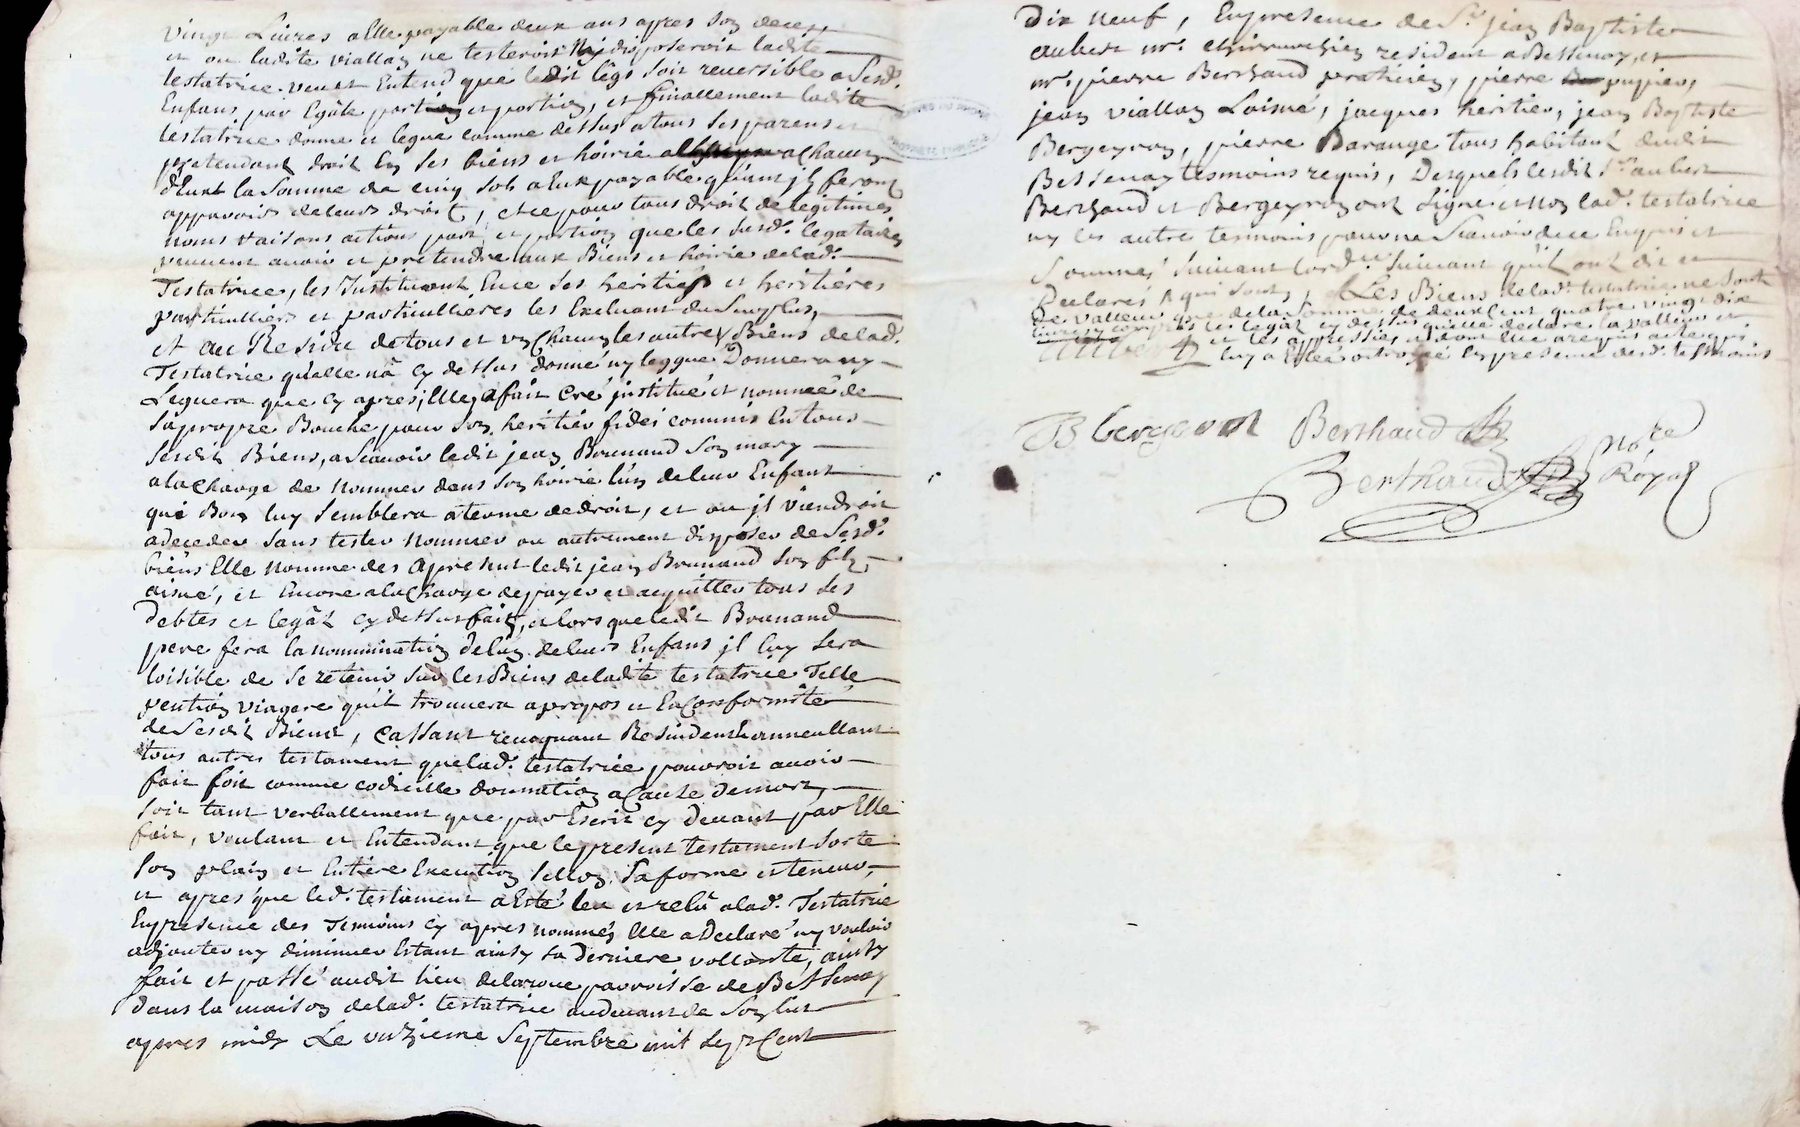 vingt Livres a elle payable deux ans apres son deces,
et ou ladite viallon ne testeroit Ny disposeroit ladite
testatrice veut et Entend que ledit légs soit reversible a sesd.
Enfans par Egale portion et portion, et finallement ladite
testatrice donne et legue comme dessus a tous ses parens et
pretendant droit En ses biens et hoirie a chacun
d'Eux la somme de cinq sols a Eux payable quant jls feront
apparoir de leurs droit, et ce pour tous droit de legitimes
noms raisons actions part et portion que les susd. legataires
peuvent avoir et pretendre aux Biens et hoirie de lad.
Testatrice, les Instituant En ce ses heritiers et heritières
particulliers et particullières les Excluant du surplus,
et au Residu de tous et un Chacun les autres Biens de lad.
Testatrice qu'elle n'a cy dessus donné ny leggué Donnera ny
Leguera que cy apres, Elle a fait créé jnstitué et nommée de
sa propre Bouche pour son heritier fidei commis En tous
sesdit Biens, a scavoir ledit jean Brunand son mary
a la charge de nommer dans son hoirie l'un de leur Enfant
que Bon luy semblera a terme de droit, et ou jl viendroit
a deceder sans tester nommer ou autrement disposer de sesd.
biens Elle nomme des apresent ledit jean Brunand son fils
aisné, et Encore a la charge de payer et acquitter tous ses
debtes et legât cy dessus fait, et lors que ledit Brunand
pere fera la nommination de l'un de leurs Enfans jl luy sera
loisible de se retenir sur les Biens de ladite testatrice Telle
pention viagere qu'il trouvera a propos et En Conformité
de sesdit Biens, cassant revoquant
tous autres testament que lad. testatrice pourroit avoir
fait soit comme codicille donnation a Cause de mort,
soit tant verballement que par Escrit cy devant par Elle
fait, voulant et Entendant que le present testament sorte
son plain et Entiere Execution sellon sa forme et teneur,
et apres que led. testament a Esté leu et relû a lad. Testatrice
En presence des Temoins cy apres nommés Elle a Declaré ny vouloir
adjouter ny diminuer Estant ainsy sa derniere vollonté, ainsy
fait et passé audit lieu de parroisse de Bessenay
dans la maison de lad. testatrice au devant de son lict
apres midy Le unzieme Septembre mil sept Cent
Dix Neuf, En presence de Sr. jean Baptiste
aubert mr. chirurchien resident a Bessenay, et
mr. pierre Berthaud praticien, pierre pupier,
jean viallon Laisné, jacques heritier, jean Baptiste
Bergeyron, pierre Barange tous habitant dudit
Bessenay tesmoins requis, Desquels lesdit Sr. aubert
Berthaud et Bergeyron ont signé et non lad. testatrice
ny les autre tesmoins pour ne scavoir de ce Enquis et
sommés suivant lord. suivant qu'ils ont dit et
Declarés qui sont, Les Biens de lad. testatrice ne sont
De valleur que de la somme de deux Cent quatre vingt dix
livres y compris les legât cy dessus qu'elle declare la valleur et
Aubert
luy a Esté octroyé En presence desd. tesmoins
JB bergeron Berthaud
Berthaud Nore
Royal